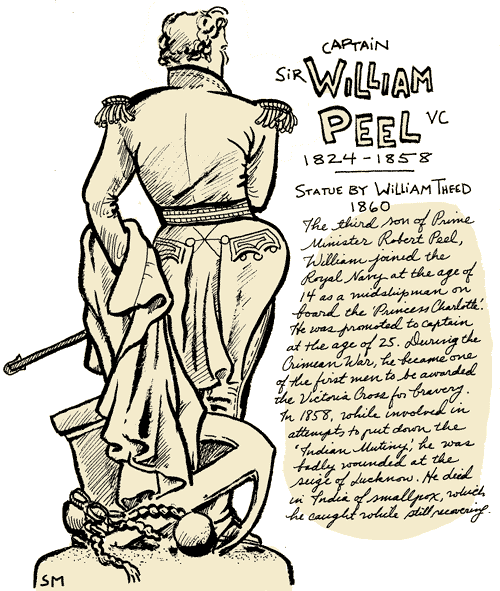 CAPTAIN
SIR WILLIAM
PEEL VC
1824-1858
STATUE BY WILLIAM THEED
1860
The third son of Prime
Minister Robert Peel,
William joined the
Royal Navy at the age of
14 as a midshipman on
board the 'Princess Charlotte'.
He was promoted to captain
at the age of 25. During the
Crimean War, he became one
of the first men to be awarded
the Victoria Cross for bravery.
In 1858, while involved in
attempts to put down the
'Indian Mutiny', he was
badly wounded at the
seige of Lucknow. He died
in India of smallpox, which
he caught while still recovering.
SM